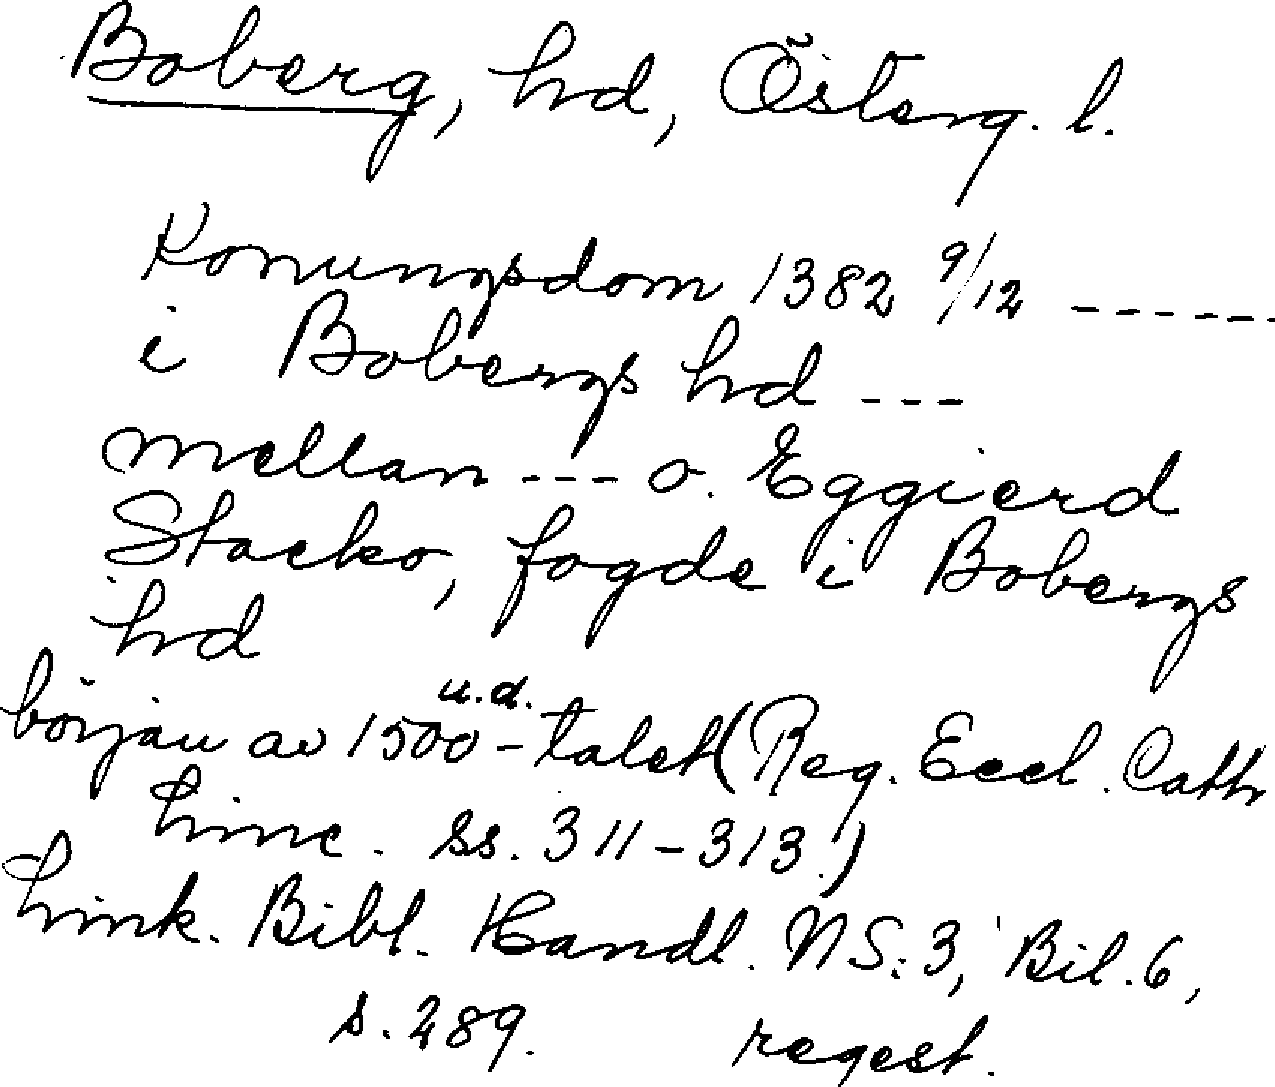 Boberg, hd, Österg. l.
Konungsdom 1382 9/12 ------
i Bobergs hd ---
mellan --- o. Eggierd
Stacko, fogde i Bobergs
hd
u.d.
början av 1500-talet (Reg. Eccl. Cath
Linc. ss. 311-313.)
Link. Bibl. Handl. NS:3, Bil. 6,
s. 289. regest.